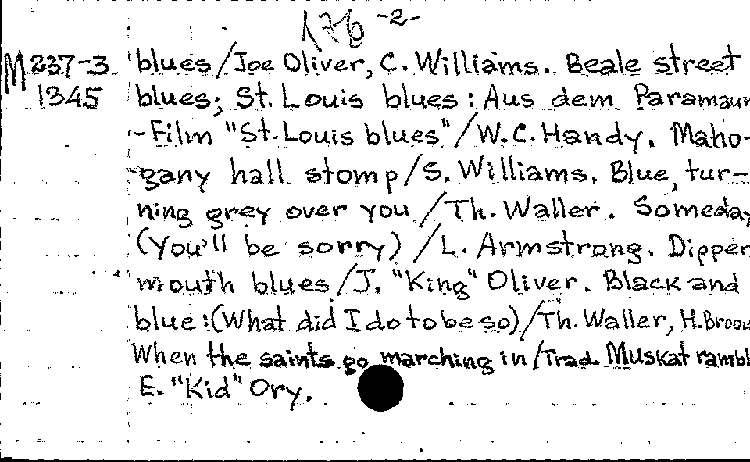 176 -2-
M 237-3 blues/Joe Oliver, C. Williams. Beale street
1345 blues; St. Louis blues: Aus dem Paramaun
-Film "St. Louis blues"/W.C. Handy. Maho-
gany hall stomp/S. Williams. Blue, tur-
ning grey over you/Th. Waller. Someday
(You'll be sorry) /L. Armstrong. Dipper
mouth blues/J. "King" Oliver. Black and
blue:(What did I do to be so)/Th. Waller, H.
When the saints go marching in/Trad. Muskat rambl
E. "Kid" Ory.